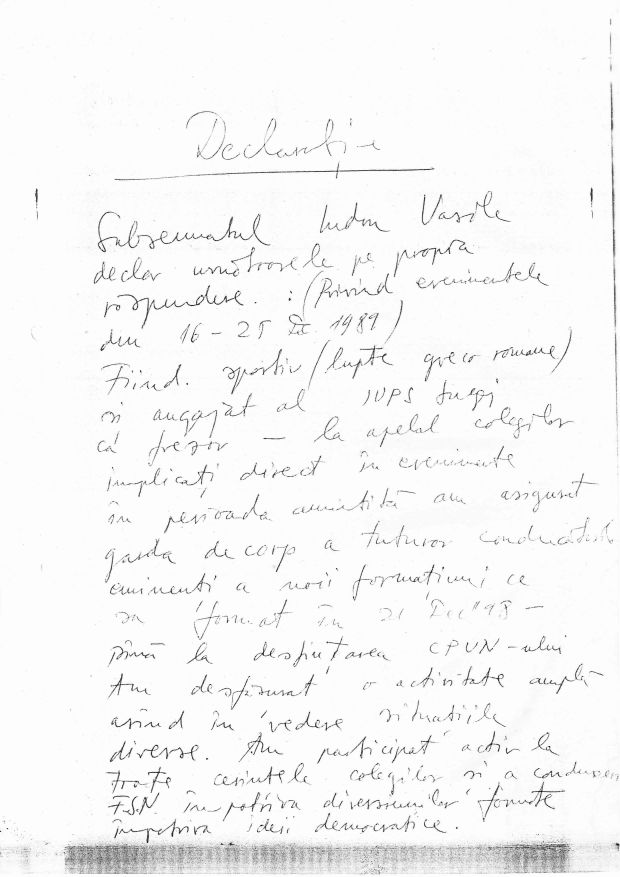 Declarație
Subsemnatul Vasile
declar următoarele pe propria
răspundere. : (Privind evenimentele
din 16 – 25 XII 1989)
Fiind. sportiv (lupte greco romane)
si angajat al IUPS
că frezor – la apelul colegilor
implicați direct în evenimente
în perioada amintită am asigurat
garda de corp a tuturor
eminenti a noii formatiuni ce
sa format în 21 Dec
pînă la desfiițarea CPUN-ului
Am desfăsurat o activitate amplă
avînd în vedere situatiile
diverse. Am participat activ la
toate cerintele colegilor si a
F.S.N. împotriva diversiunilor
împotriva ideii democratice.